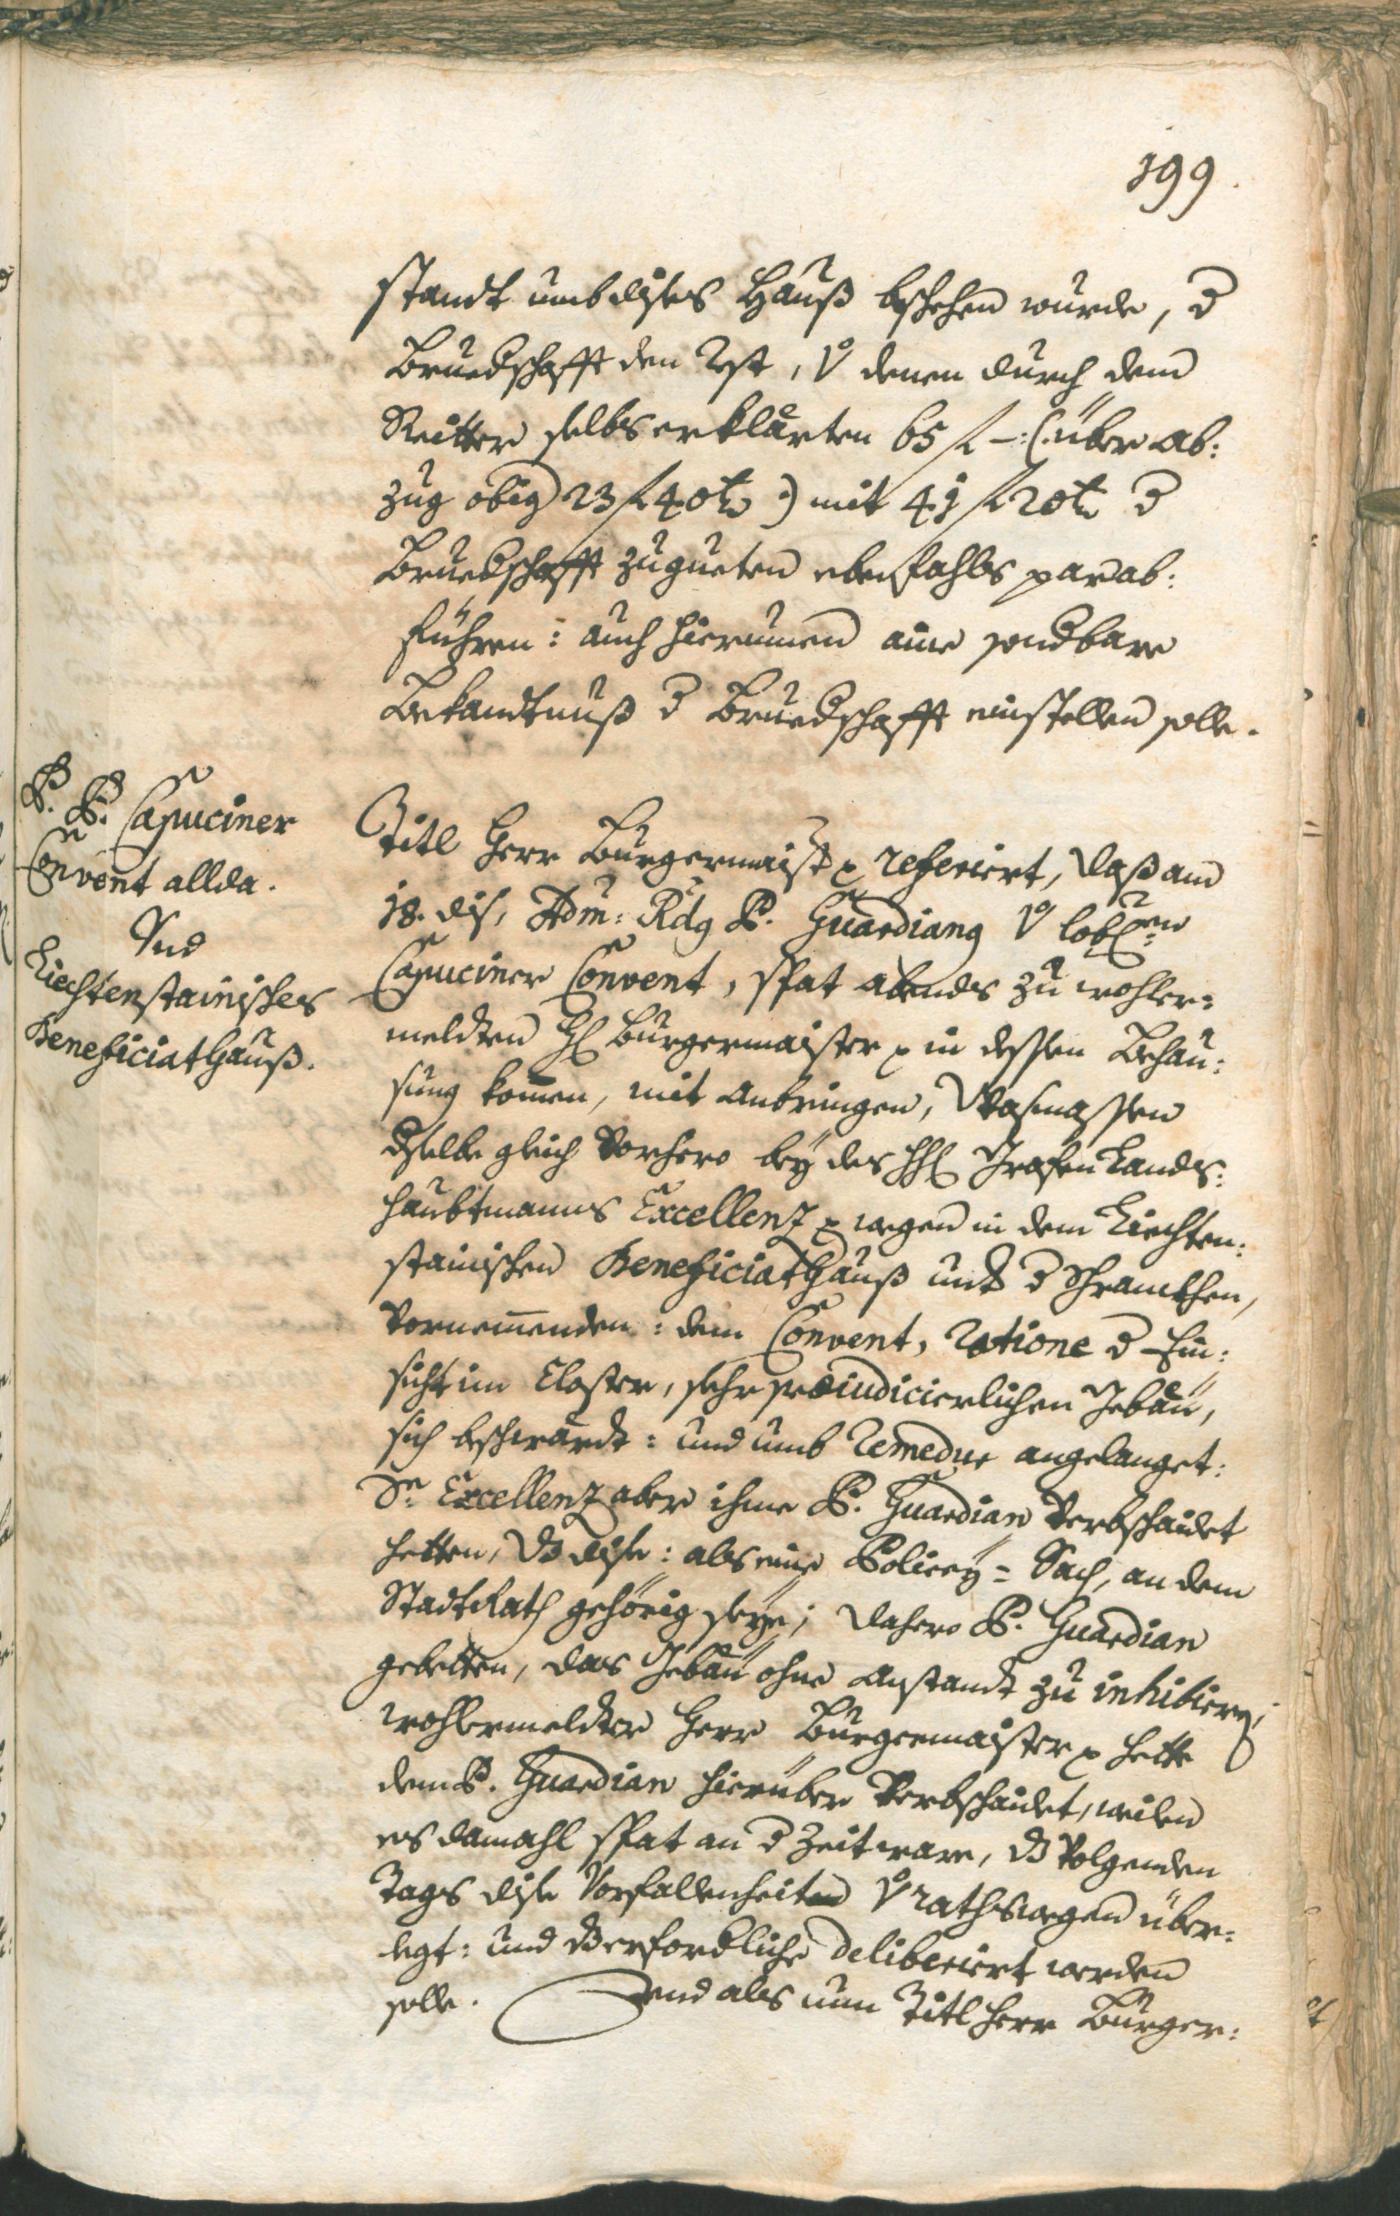 199.
standt umb dises Hauß beschehen wurde, d
Bruedschafft den Rest, v denen durch den
Reitter selbs erklärten 65 f –: (: über ab:
zug obig 23 f 40 kr :) mit 41 f 20 kr d
Bruedschafft zugueten ebenfahls par ab:
führen: auch hierumen aine sondbare
Bekandtnuß d Bruedschafft einstellen solle.
P. P. Capuciner
Convent allda.
Und
Liechtenstainisches
Beneficiat Hauß.
Titl Herr Burgermaister referiert, daß am
18. dis, Adm: Rdg P. Guardiang v lobl:en
Capuciner Convent, spat abends zu wohler=
meldten H Burgermaister in dessen Behau:
sung kommen, mit Anbringen, Wasmassen
dselbe gleich vorhero bey des HH Grafen Lands:
haubtmanns Excellenz wegen in dem Liechten:
stainischen Beneficiat Hauß undt d Schranckhen,
vornemmenden: dem Convent, Ratione d Ein:
sicht im Closter, sehr præiudicierlichen Gebäu,
sich beschwärdt: und umb Remedur angelanget:
Sr Excellenz aber ihme P. Guardian verbschaidet
hetten, dz dise: als eine Policey=Sach, an dem
Stadt Rath gehörig seye; dahero P. Guardian
gebetten, das Gebäu ohne Anstandt zu inhibiern;
wohlermeldter Herr Burgermaister hette
dem P. Guardian hierüber verbschaidet, weilen
es damahl spat an d Zeit ware, dz volgenden
Tags dise Vorfallenheiten v raths wegen über=
legt: und dz erfordliche deliberiert werden
solle. Und als nun Titl Herr Burger: